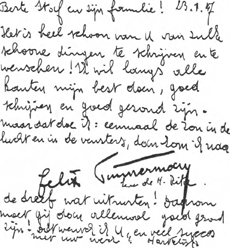 Beste Stef en zijn familie! 23.9.87
Het is heel schoon van U van zulk
schoone dingen te schrijven en te
wenschen! Ik wil langs alle
kanten mijn best doen, goed
schrijven en goed gezond zijn.
maar dat doe ik: eenmaal de zon in de
lucht en in de vensters, dan kom ik nog
Felix Timmermans
de dreef wat uitrusten! Daarom
moet gij doen allemaal goed gezond
zijn. dat wensch ik U, en veel succes
met uw werk! Hartelijk